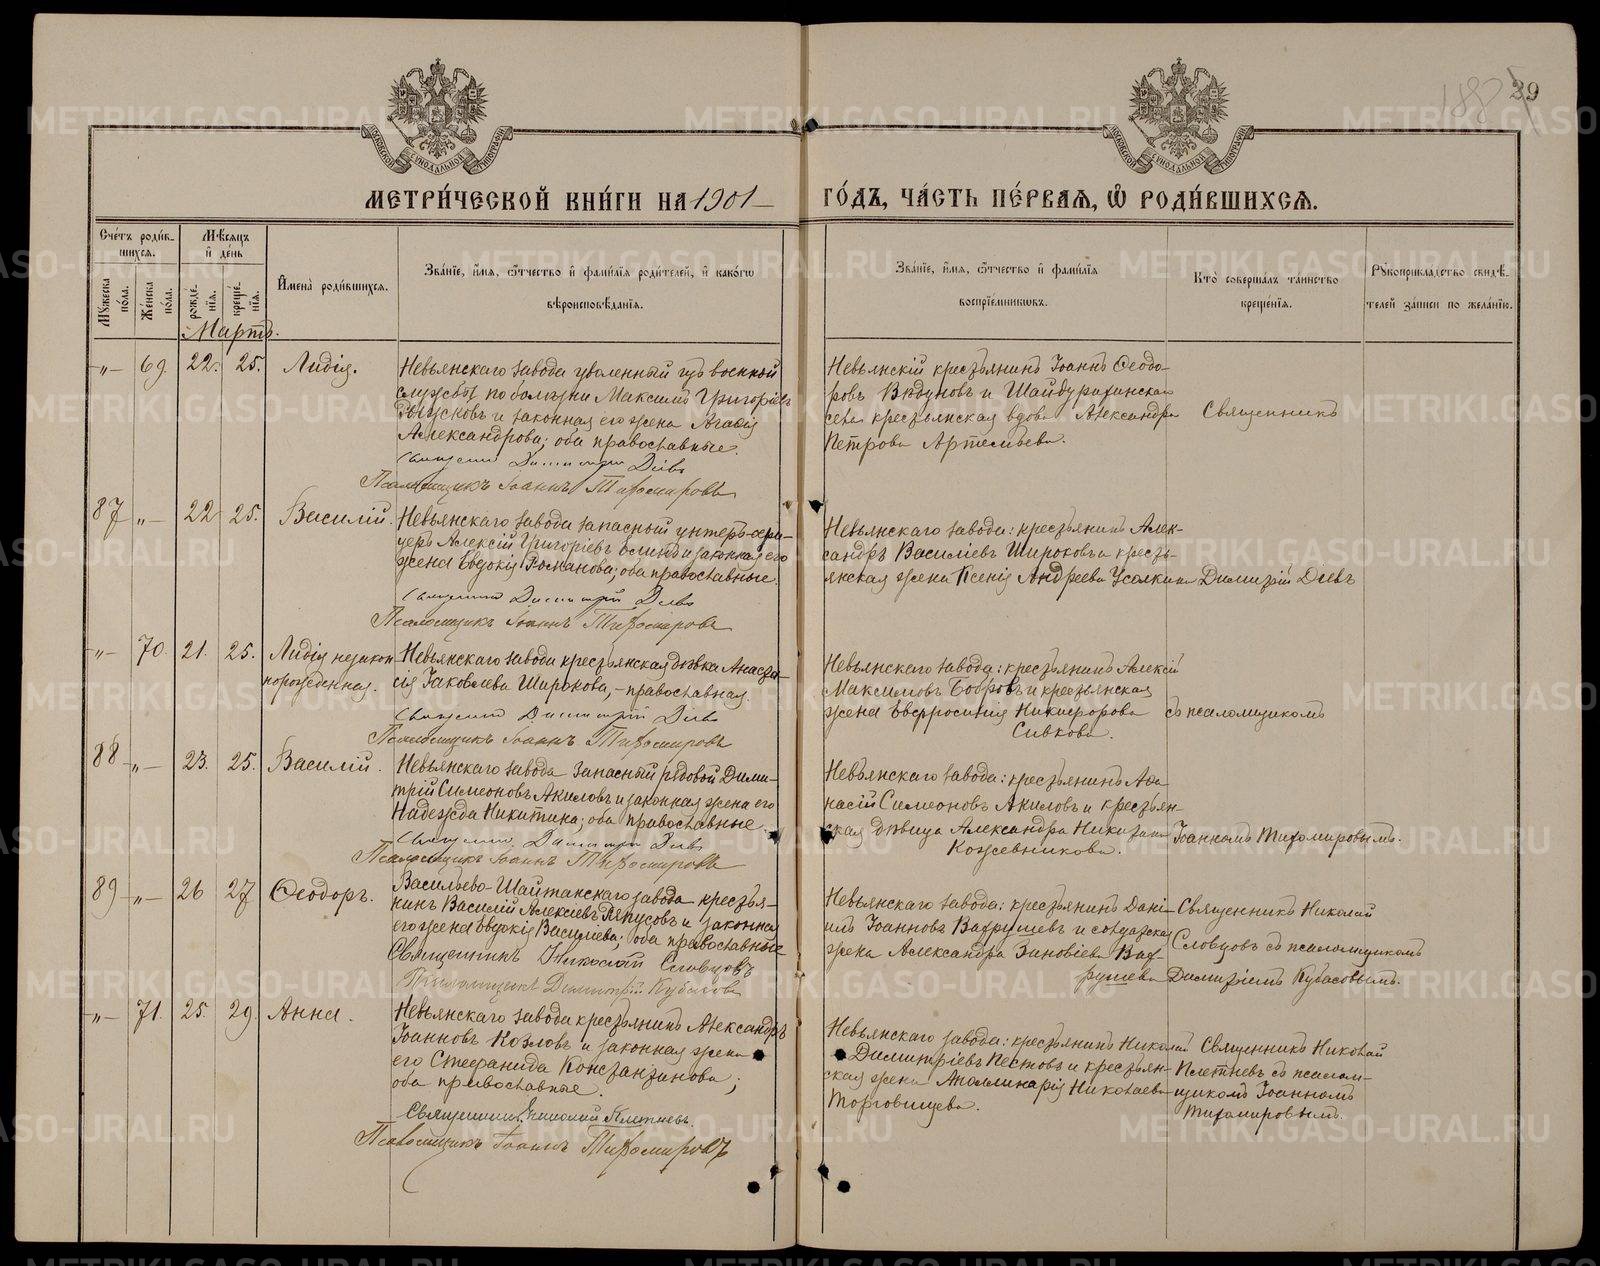 39
МОСКОВСКОЙ СѴНОДАЛЬНОЙ ТИПОГРАФІИ
МОСКОВСКОЙ СѴНОДАЛЬНОЙ ТИПОГРАФІИ
МЕТРИ́ЧЕСКОЙ КНИ́ГИ НА 1901 ГО́ДЪ, ЧА́СТЬ ПЕ́РВАЯ, Ѡ҆ РОДИ́ВШИХСЯ.
Сче́тъ роди́в-
шихся.
Мꙋ́жеска по́ла.
Же́нска по́ла.
Мѣ́сяцъ
и҆ де́нь
рожде́-нїя.
креще́-нїя.
И҆мена̀ роди́вшихся.
Зва́нїе, и҆́мя, ѻ҆́тчество и҆ фами́лїя роди́телей, и҆ како́гѡ
вѣроисповѣ́данїя.
Зва́нїе, и҆́мя, ѻ҆́тчество и҆ фами́лїя
воспрїе́мниковъ.
Кто̀ соверша́лъ та́инство
креще́нїя.
Рꙋкоприкла́дство свидѣ́-
телей за́писи по жела́нїю.
Мартъ.
-„- 69. 22. 25. Лидія.
Невьянскаго завода уволенный изъ военной
службы по болѣзни Максимъ Григоріевъ
и законная его жена Агафія
Александрова; оба православные.
Священникъ Димитрій Діевъ
Псаломщикъ Іоаннъ Тихомировъ
Невьянскій крестьянинъ Іоаннъ Ѳеодо-
ровъ и Шайдурихинскаго
села крестьянская вдова Александра
Петрова Артемьева.
Священникъ
87 -„- 22 25. Василій.
Невьянскаго завода запасный унтеръ-офи-
церъ Алексій Григоріевъ и законная его
жена Евдокія Романова; оба православные.
Священникъ Димитрій Діевъ
Псаломщикъ Іоаннъ Тихомировъ
Невьянскаго завода: крестьянинъ Алек-
сандръ Василіевъ Широковъ и кресть-
янская жена Ксенія Андреева
Димитрій Діевъ
-„- 70. 21. 25. Лидія незакон-
норожденная.
Невьянскаго завода крестьянская дѣвка Анаста-
сія Іаковлева Широкова, - православная.
Священникъ Димитрій Діевъ
Псаломщикъ Іоаннъ Тихомировъ
Невьянскаго завода: крестьянинъ Алексій
Максимовъ Бобровъ и крестьянская
жена Евфросинія Никифорова
Сивкова.
съ псаломщикомъ
88 -„- 23. 25. Василій.
Невьянскаго завода запасный рядовой Дими-
трій Симеоновъ Акиловъ и законная жена его
Надежда Никитина; оба православные.
Священникъ Димитрій Діевъ
Псаломщикъ Іоаннъ Тихомировъ
Невьянскаго завода: крестьянинъ Аѳа-
насій Симеоновъ Акиловъ и крестьян-
ская дѣвица Александра Никитина
Кожевникова.
Іоанномъ Тихомировымъ.
89 -„- 26 27 Ѳеодоръ.
Васильево-Шайтанскаго завода крестья-
нинъ Василій Алексіевъ Ляпусовъ и законная
его жена Евдокія Василіева; оба православные
Священникъ Николай Словцовъ
Псаломщикъ Димитрій Кубасовъ
Невьянскаго завода: крестьянинъ Даніи-
илъ Іоанновъ Вахрушевъ и солдатская
жена Александра Зиновіева Вах-
рушева
Священникъ Николай
Словцовъ съ псаломщикомъ
Димитріемъ Кубасовымъ.
-„- 71. 25. 29. Анна.
Невьянскаго завода крестьянинъ Александръ
Іоанновъ Козловъ и законная жена
его Стефанида Константинова;
оба православные.
Священникъ Николай Плетневъ.
Псаломщикъ Іоаннъ Тихомировъ
Невьянскаго завода: крестьянинъ Николай
Димитріевъ Пестовъ и крестьян-
ская жена Аполлинарія Николаева
Торговищева.
Священникъ Николай
Плетневъ съ псалом-
щикомъ Іоанномъ
Тихомировымъ.
METRIKI.GASO-URAL.RU